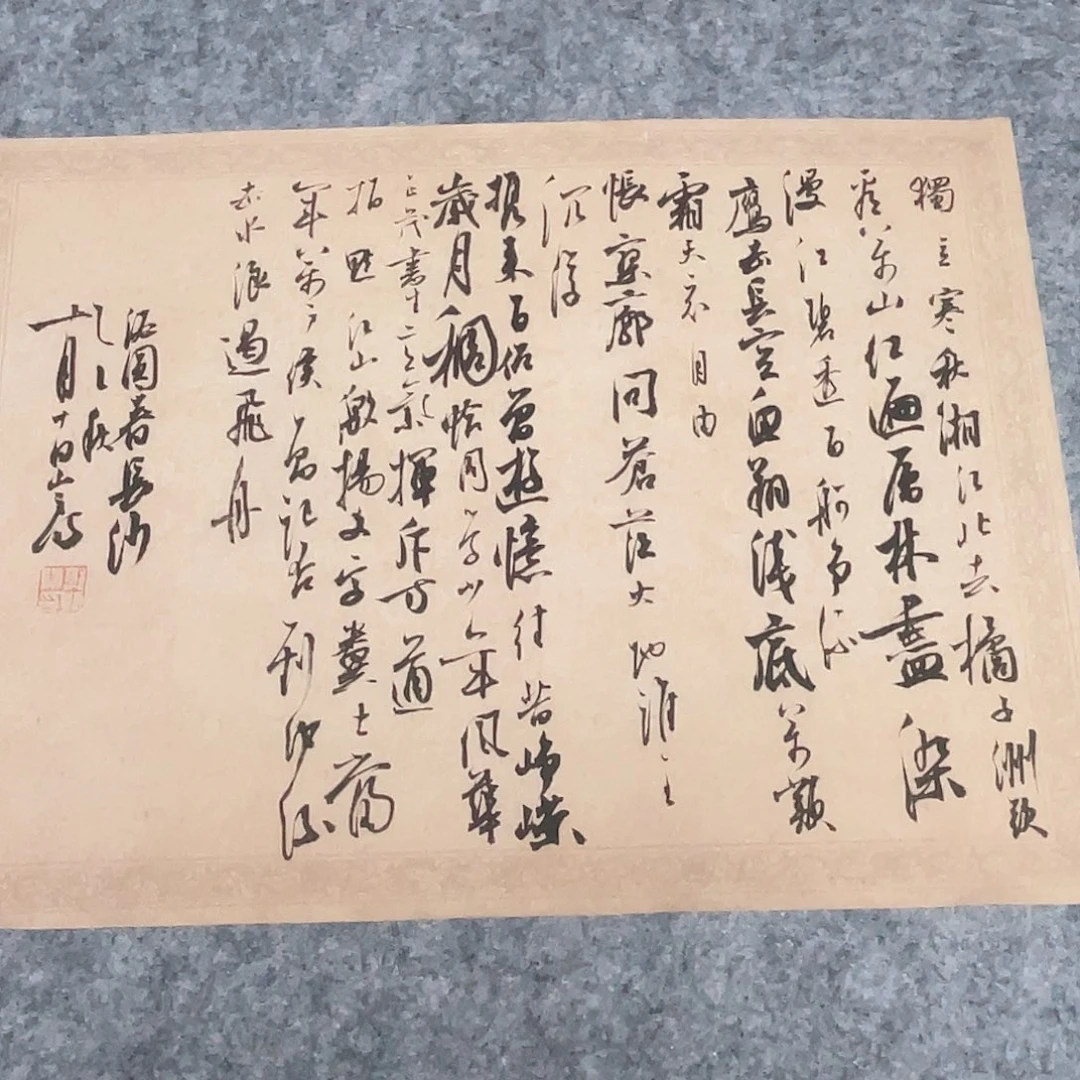 獨立寒秋湘江北去橘子洲頭
看萬山红遍層林盡染
漫江碧透百舸争流
鹰击長空鱼翔浅底萬類
霜天竞自由
悵寥廓問蒼茫大地誰主
沉浮
携来百侣曾遊憶往昔崢嶸
歲月稠恰同学少年風華
正茂書生意氣揮斥方遒
指點江山激揚文字糞土當
年萬户侯曾記否到中流
击水浪遏飛舟
沁園春長沙
秋
十月十日